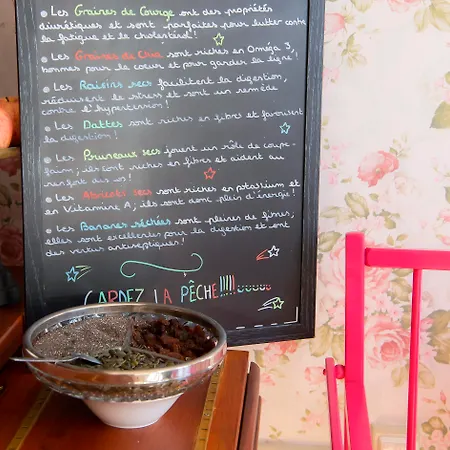 • Les Graines de Courge ont des propriétés
diurétiques et sont parfaites pour lutter contre
la fatigue et le cholestérol !
• Les Graines de Chia sont riches en Oméga 3,
bonnes pour le coeur et pour garder la ligne !
• Les Raisins secs facilitent la digestion,
réduisent le stress et sont un remède
contre l'hypertension !
• Les Dattes sont riches en fibre et favorisent
la digestion !
• Les Pruneaux secs jouent un rôle de coupe-
faim ; ils sont riches en fibres et aident au
renfort des os !
• Les Abricots secs sont riches en potassium et
en Vitamine A ; ils sont donc plein d'énergie !
• Les Bananes séchées sont pleines de fibres,
elles sont excellentes pour la digestion et ont
des vertus antiseptiques !
GARDEZ LA PÊCHE !!!!!